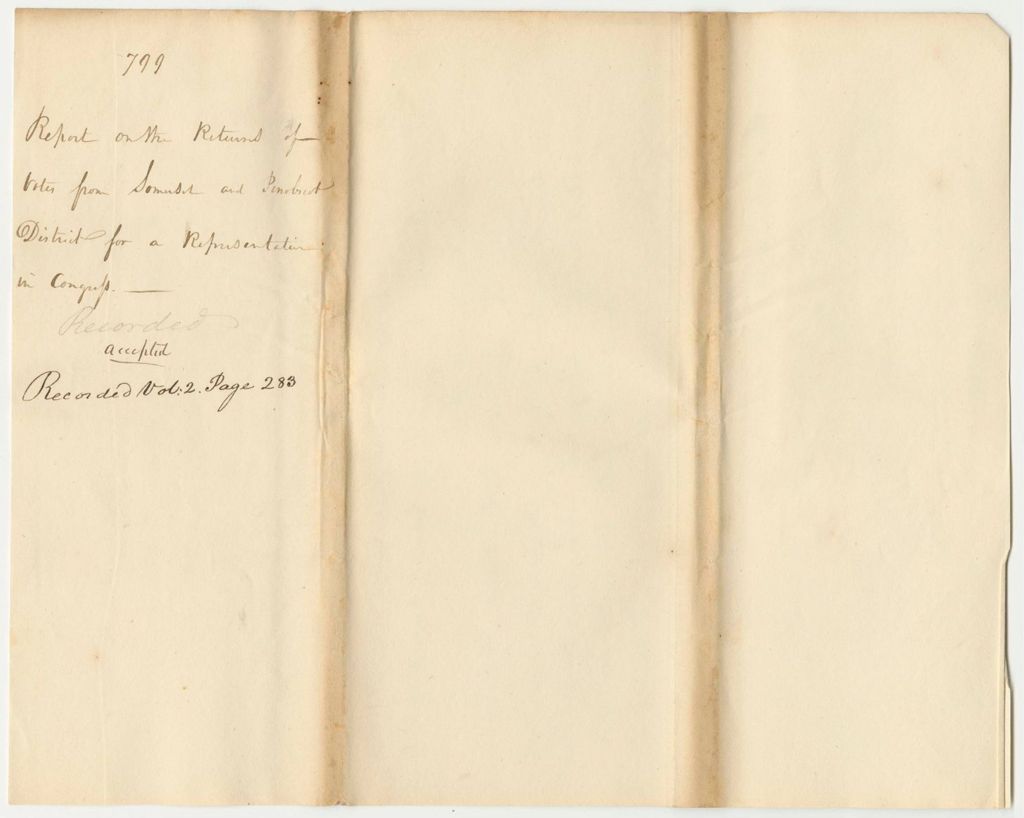 799
Report on the Returns of
Votes from Somerset and Penobscot
District for a Representative
in Congress.
Recorded
accepted
Recorded Vol: 2. Page 283